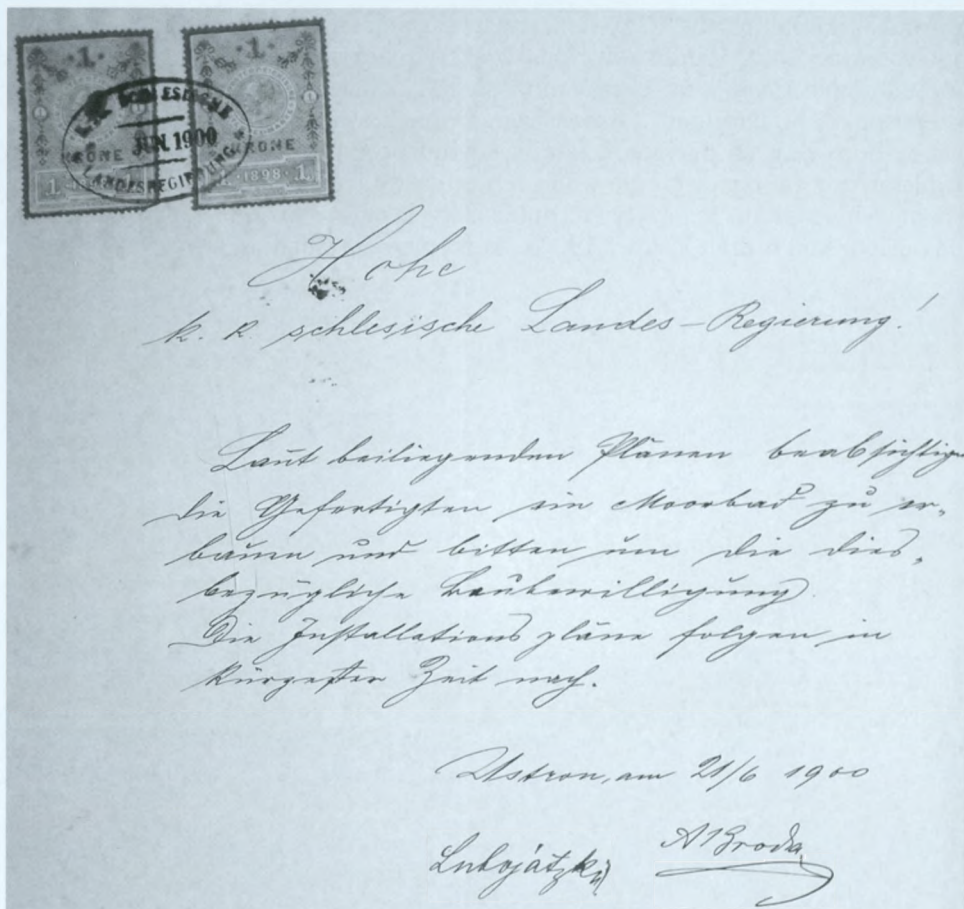 1 1
K.K. SCHLESISCHE
JUN. 1900
LANDESREGIERUNG
KRONE KRONE
1 1 1898 1
Hohe
k. k. schlesische Landes-Regierung!
Laut beiliegenden Plänen beabsichtigen
die Gefertigten ein Moorbad zu er-
bauen und bitten um die dies-
bezügliche Baubewilligung.
Die Installationspläne folgen in
kürzester Zeit nach.
Ustron, am 21/6 1900
Lubojátzki ABroda